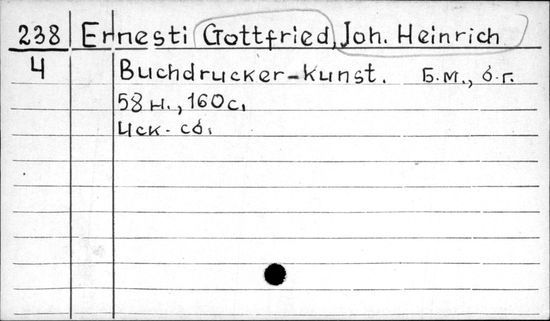 238 Ernesti Gottfried, Joh. Heinrich
4 Buchdrucker-kunst. Б.м., б.г.
58 н., 160 с.
Иск. сб.